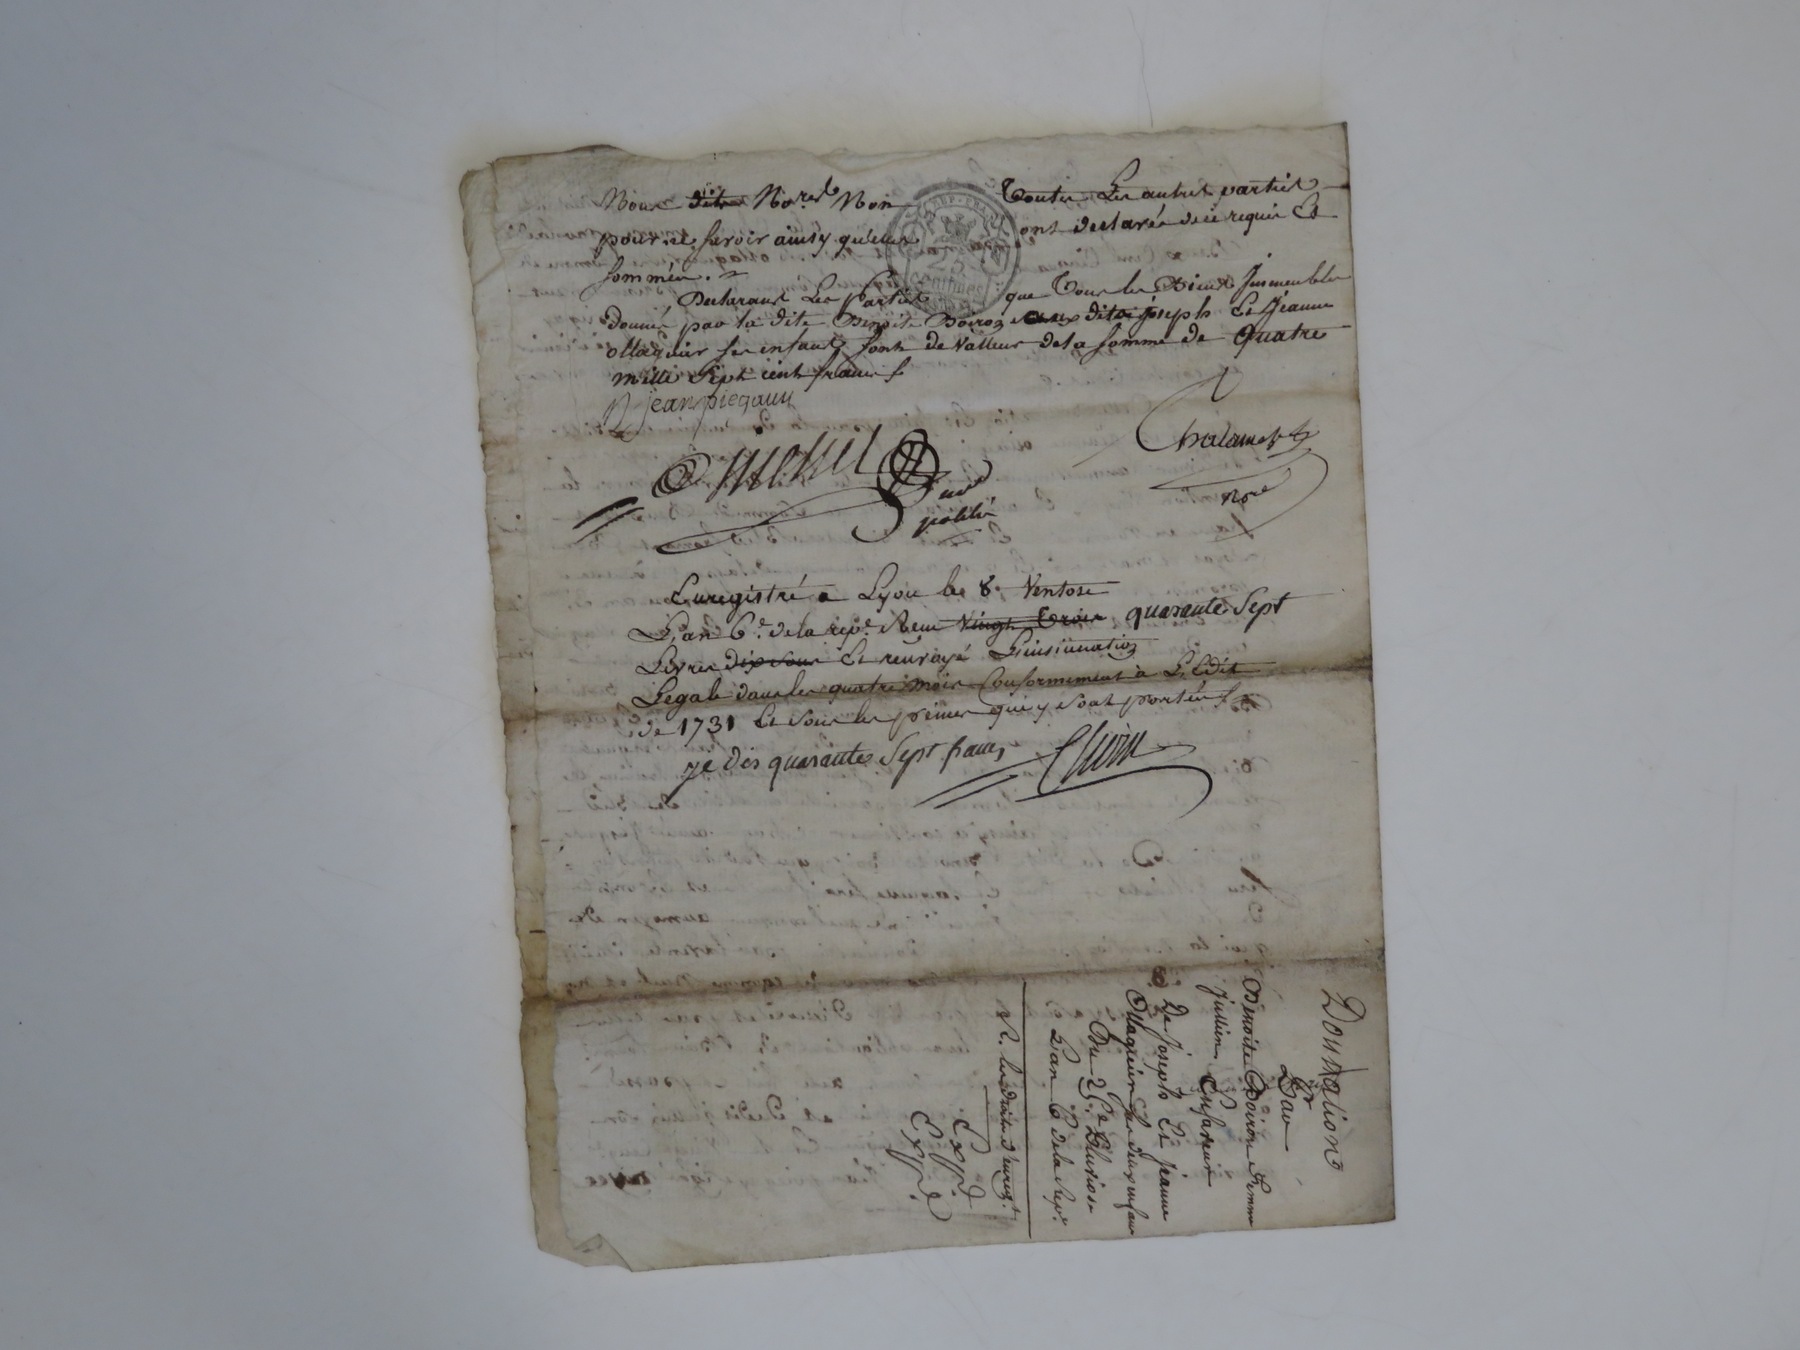 Nous dits No.res Non Toutes Les autres parties
pour ne savoir ainsy qu'elles ont declarés de ce requis Et
sommés.
Declarans Les Parties que Tous les Biens Jmmeubles
donnés par la dite Benoite Boiron aux dits joseph Et jeanne
Maquier ses enfants sont de Valleur de la somme de Quatre
mille Sept cent francs
jean piegauu
Chalamel
No.re
public
Enregistré a Lyon le 8. Ventose
L'an 6.e de la rep.e Reçu vingt Trois quarante Sept
Livres dix sous Et renvoyé L'insinuation
Legale dans les quatre mois conformement à L'Edit
de 1731 Et sous les peines qui y sont portées
je dis quarante Sept francs
Donnation
Par
Benoite Boiron femme
jullien
De Joseph Et jeanne
Maquier ses deux enfans
Du 25.e Pluviose
L'an 6 de la Rep.e
R. les droits d'enreg.t
Exp.é
Exp.é